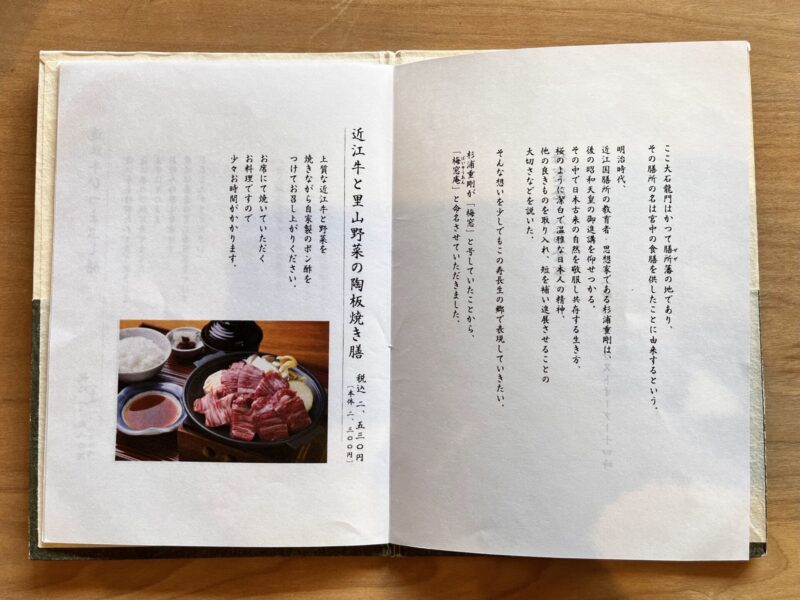 ここ大石龍門はかつて膳所藩の地であり、
ぜぜ
その膳所の名は宮中の食膳を供したことに由来するという。
明治時代、
近江国膳所の教育者・思想家である杉浦重剛は、
後の昭和天皇の御進講を仰せつかる。
その中で日本古来の自然を敬服し共存する生き方、
桜のように潔白で温雅な日本人の精神、
他の良きものを取り入れ、短を補い進展させることの
大切さなどを説いた。
そんな想いを少しでもこの寿長生の郷で表現していきたい。
杉浦重剛が「梅窓」と号していたことから、
ばいそうあん
「梅窓庵」と命名させていただきました。
近江牛と里山野菜の陶板焼き膳
税込 二、五三〇円
(本体 二、三〇〇円)
上質な近江牛と野菜を
焼きながら自家製のポン酢を
つけてお召し上がりください。
お席にて焼いていただく
お料理ですので
少々お時間がかかります。